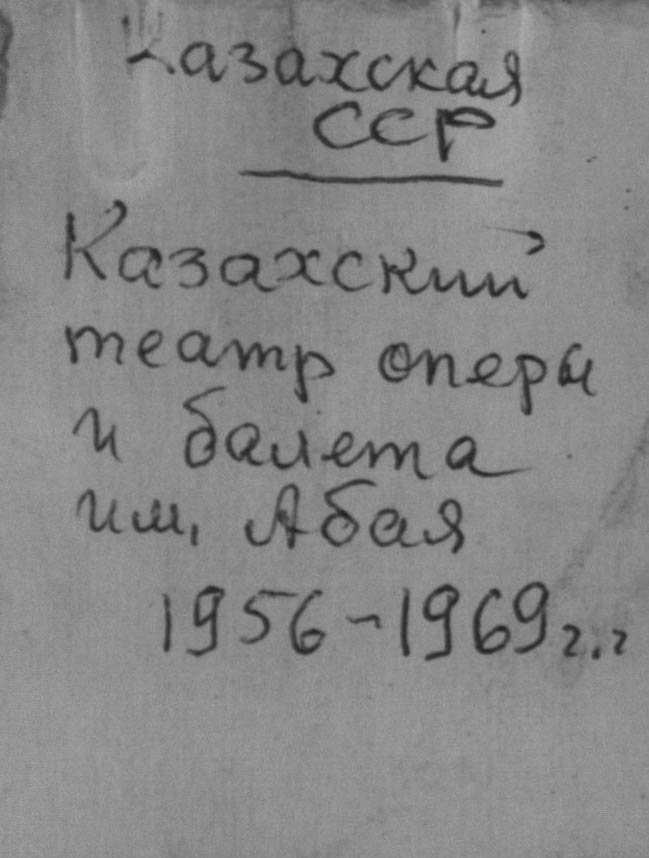 Казахская
ССР
Казахский
театр оперы
и балета
им. Абая
1956-1969 г.г